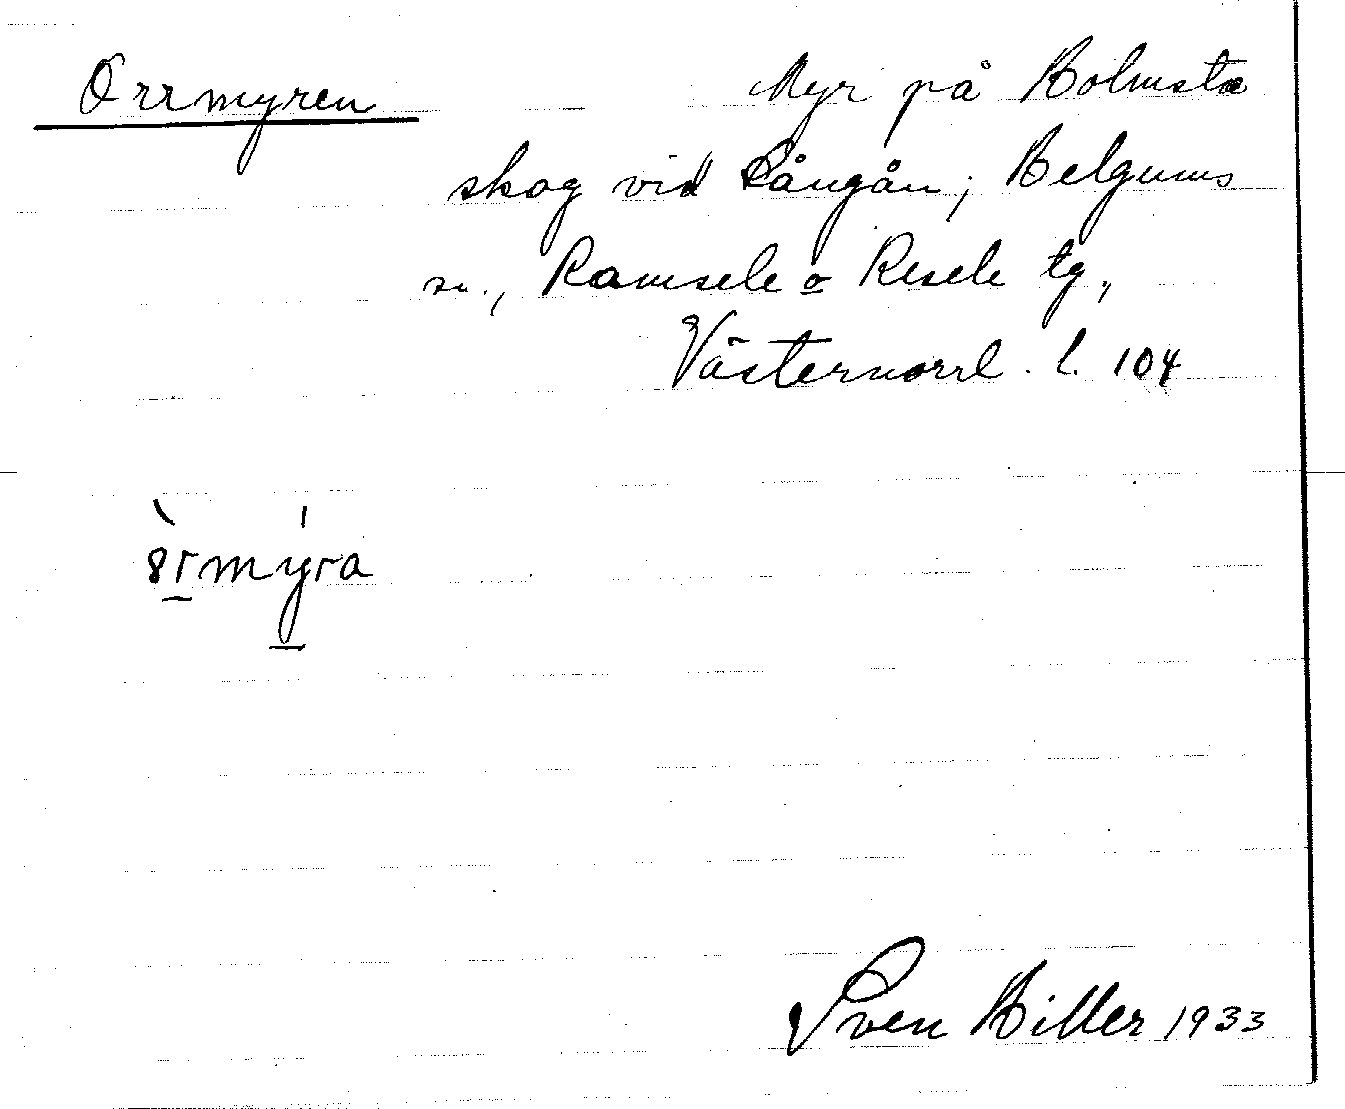 Orrmyren Myr på Holmsta
skog vid Långån; Helgums
sn., Ramsele o Resele tg,
Västernorrl. l. 104
ȣrmyra
Sven Hiller 1933